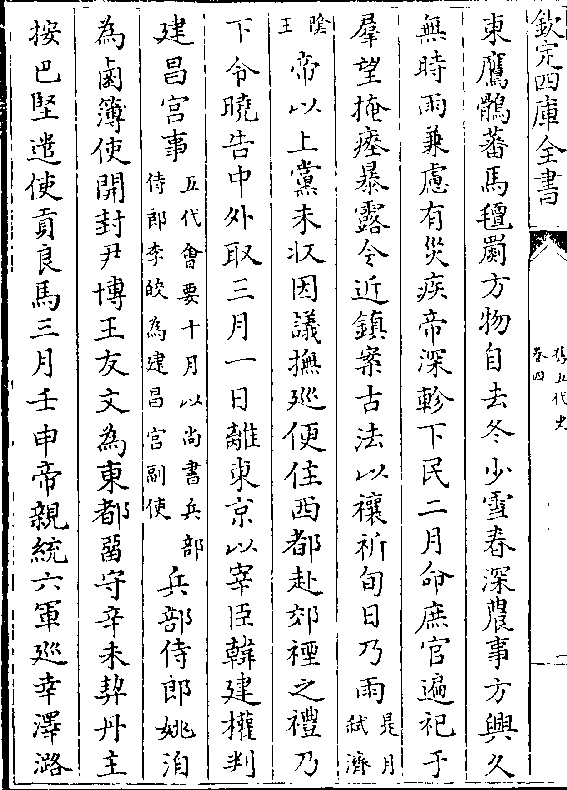 欽定四庫全書
舊五代史
卷四
東鷹鶻蕃馬氊罽方物自去冬少雪春深農事方興久
無時雨兼慮有災疾帝深軫下民二月命庶官遍祀于
羣望掩瘞暴露令近鎮案古法以禳祈旬日乃雨是月弑濟
陰王帝以上黨未收因議撫巡便往西都赴郊禋之禮乃
下令曉告中外取三月一日離東京以宰臣韓建權判
建昌宮事五代會要十月以尚書兵部侍郎李皎為建昌宮副使兵部侍郎姚洎
為鹵簿使開封尹博王友文為東都留守辛未契丹主
按巴堅遣使貢良馬三月壬申帝親統六軍巡幸澤潞